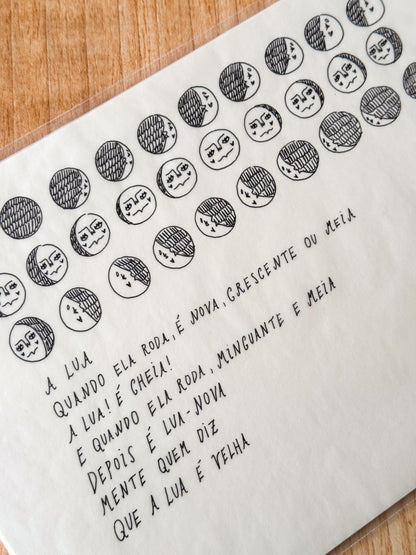 A LUA
QUANDO ELA RODA, É NOVA, CRESCENTE OU MEIA
A LUA! É CHEIA!
E QUANDO ELA RODA, MINGUANTE E MEIA
DEPOIS É LUA-NOVA
MENTE QUEM DIZ
QUE A LUA É VELHA